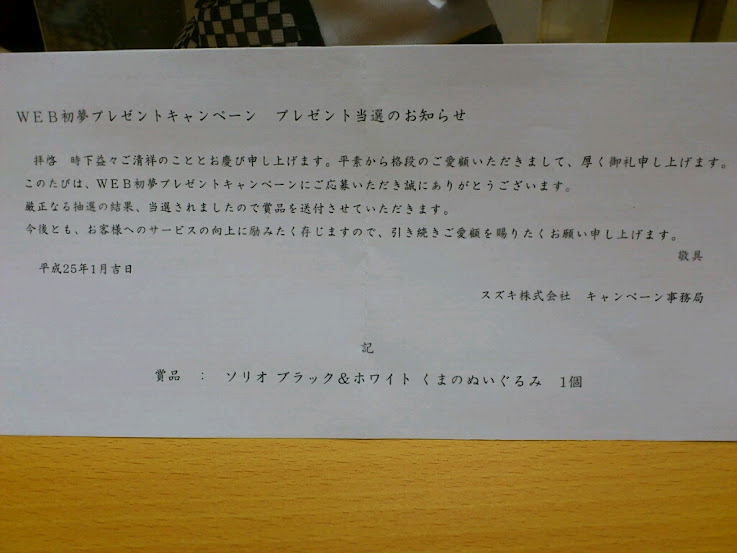 WEB初夢プレゼントキャンペーン　プレゼント当選のお知らせ
拝啓　時下益々ご清祥のこととお慶び申し上げます。平素から格段のご愛顧いただきまして、厚く御礼申し上げます。
このたびは、WEB初夢プレゼントキャンペーンにご応募いただき誠にありがとうございます。
厳正なる抽選の結果、当選されましたので賞品を送付させていただきます。
今後とも、お客様へのサービスの向上に励みたく存じますので、引き続きご愛顧を賜りたくお願い申し上げます。
敬具
平成25年1月吉日
スズキ株式会社　キャンペーン事務局
記
賞品　：　ソリオ ブラック＆ホワイト くまのぬいぐるみ　1個